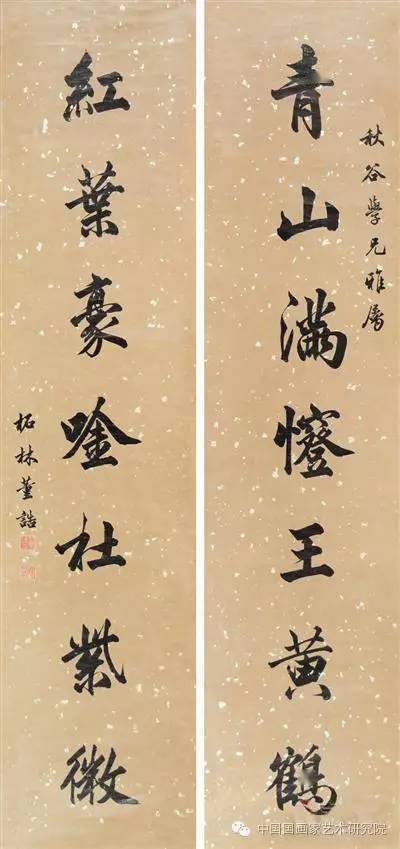 秋谷學兄雅屬
青山滿王黄鶴
紅葉豪唫杜紫微
柘林董誥
中国国画家艺术研究院